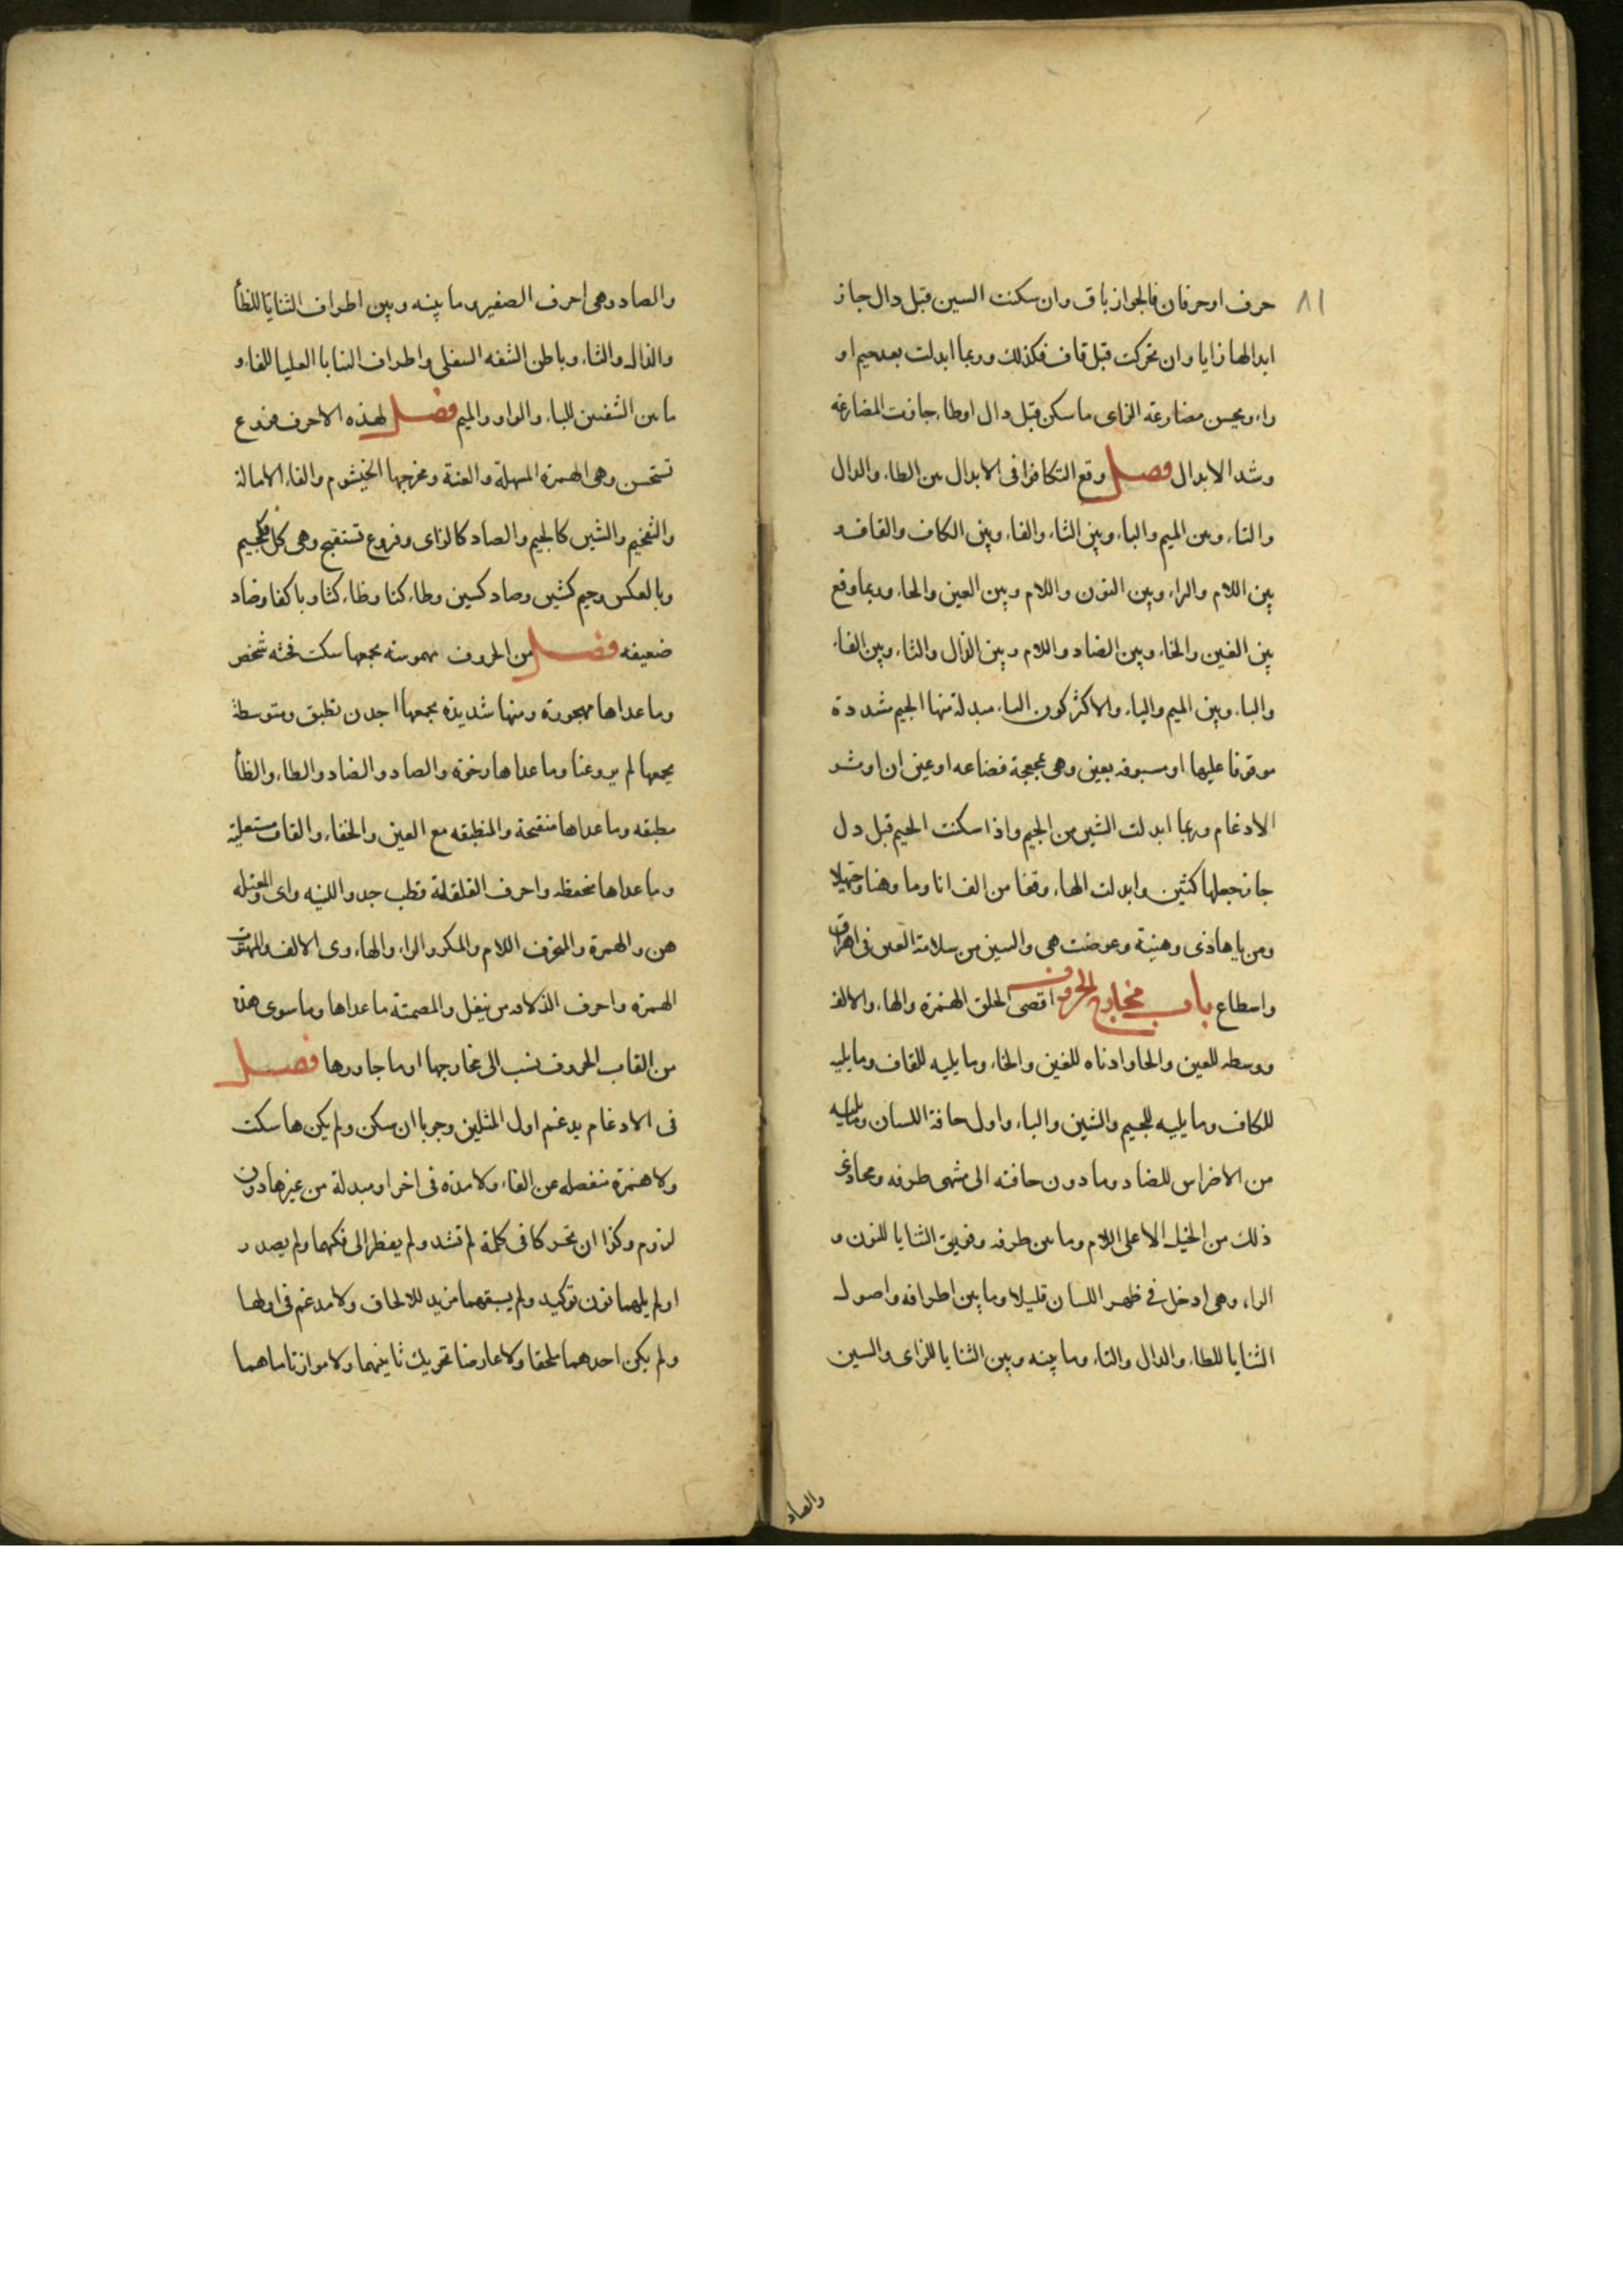 ٨١
حرف او حرفان فالجواز باق وان سكنت السين قبل دال جاز
ابدالها زايا وان تحركت قبل قاف فكذلك وربما ابدلت بعد جيم او
راء ويحسن مضارعة الزاى ما سكن قبل دال او طاء جازت المضارعة
وشد الابدال فصل وقع التكافؤ فى الابدال بين الطاء والدال
والتاء وبين الميم والباء وبين الثاء والفاء وبين الكاف والقاف و
بين اللام والراء وبين النون واللام وبين العين والحاء وربما وقع
بين الغين والخاء وبين الضاد واللام وبين الذال والثاء وبين الفاء
والباء وبين الميم والياء والاكثر كون الياء مبدلة منها الجيم مشددة
موقوفا عليها او مسبوقه بعين وهى عجعجة قضاعه او عين ان اوثر
الادغام وربما ابدلت الشين من الجيم واذا سكنت الجيم قبل دل
جاز جعلها كشين وابدلت الهاء وقفا من الف انا وما وهنا وحيهلا
ومن يا هاذى وهنية وعوضت هى والسين من سلامة العين فى اهراق
واسطاع باب مخارج الحروف اقصى الحلق الهمزة والهاء والالف
ووسطه للعين والحا وادناه للغين والخاء وما يليه للقاف وما يليه
للكاف وما يليه للجيم والشين والياء واول حافة اللسان وما يليه
من الاضراس للضاد وما دون حافته الى منتهى طرفه ومحاذى
ذلك من الحنك الاعلى اللام وما بين طرفه وفويق الثنايا للنون و
الراء وهى ادخل فى ظهر اللسان قليلا وما بين اطرافه واصول
الثنايا للطاء والدال والتاء وما بينه وبين الثنايا للزاى والسين
والصاد
والصاد وهى احرف الصفير وما بينه وبين اطراف الثنايا للظأ
والذال والثاء وباطن الشفه السفلى واطراف الثنايا العليا للفاء و
ما بين الشفتين للباء والواو والميم فصل لهذه الاحرف فروع
تستحسن وهى الهمزة المسهلة والغنة ومخرجها الخيشوم والفاء الامالة
والتفخيم والشين كالجيم والصاد كالزاى وفروع تستقبح وهى كاف كجيم
وبالعكس وجيم كشين وصاد كسين وطاء كتا وظاء كثا وبا كفا وضاد
ضعيفه فصل من الحروف مهموسة يجمعها سكت فحثه شخص
وما عداها مجهورة ومنها شديدة يجمعها اجدت طبق ومتوسطة
يجمعها لم يروعنا وما عداها رخوة والصاد والضاد والطاء والظأ
مطبقه وما عداها منفتحة والمنطبقه مع الغين والخاء والقاف مستعلية
وما عداها منخفظه واحرف القلقلة قطب جد واللينه واى والمعتله
هن والهمزة والمنحرف اللام والمكرر الراء والهاء وى الالف والمهتوت
الهمزة واحرف الذلاقه من نيفل والمصمتة ما عداها وما سوى هذه
من القاب الحروف نسب الى مخارجها او ما جاورها فصل
فى الادغام يدغم اول المثلين وجوبا ان سكن ولم يكن ها سكت
ولا همزة منفصله عن الفاء ولا مدة فى اخر او مبدلة من غيرها دون
لزوم وكذا ان تحركا فى كلمة لم تشد ولم يضطر الى فكهما ولم يصدرا
او لم يلهما نون توكيد ولم يسبقهما مزيد للالحاق ولا مدغم فى اولهما
ولم يكن احدهما ملحقا ولا عارضا تحريك ثانيهما ولا موازنا ما هما